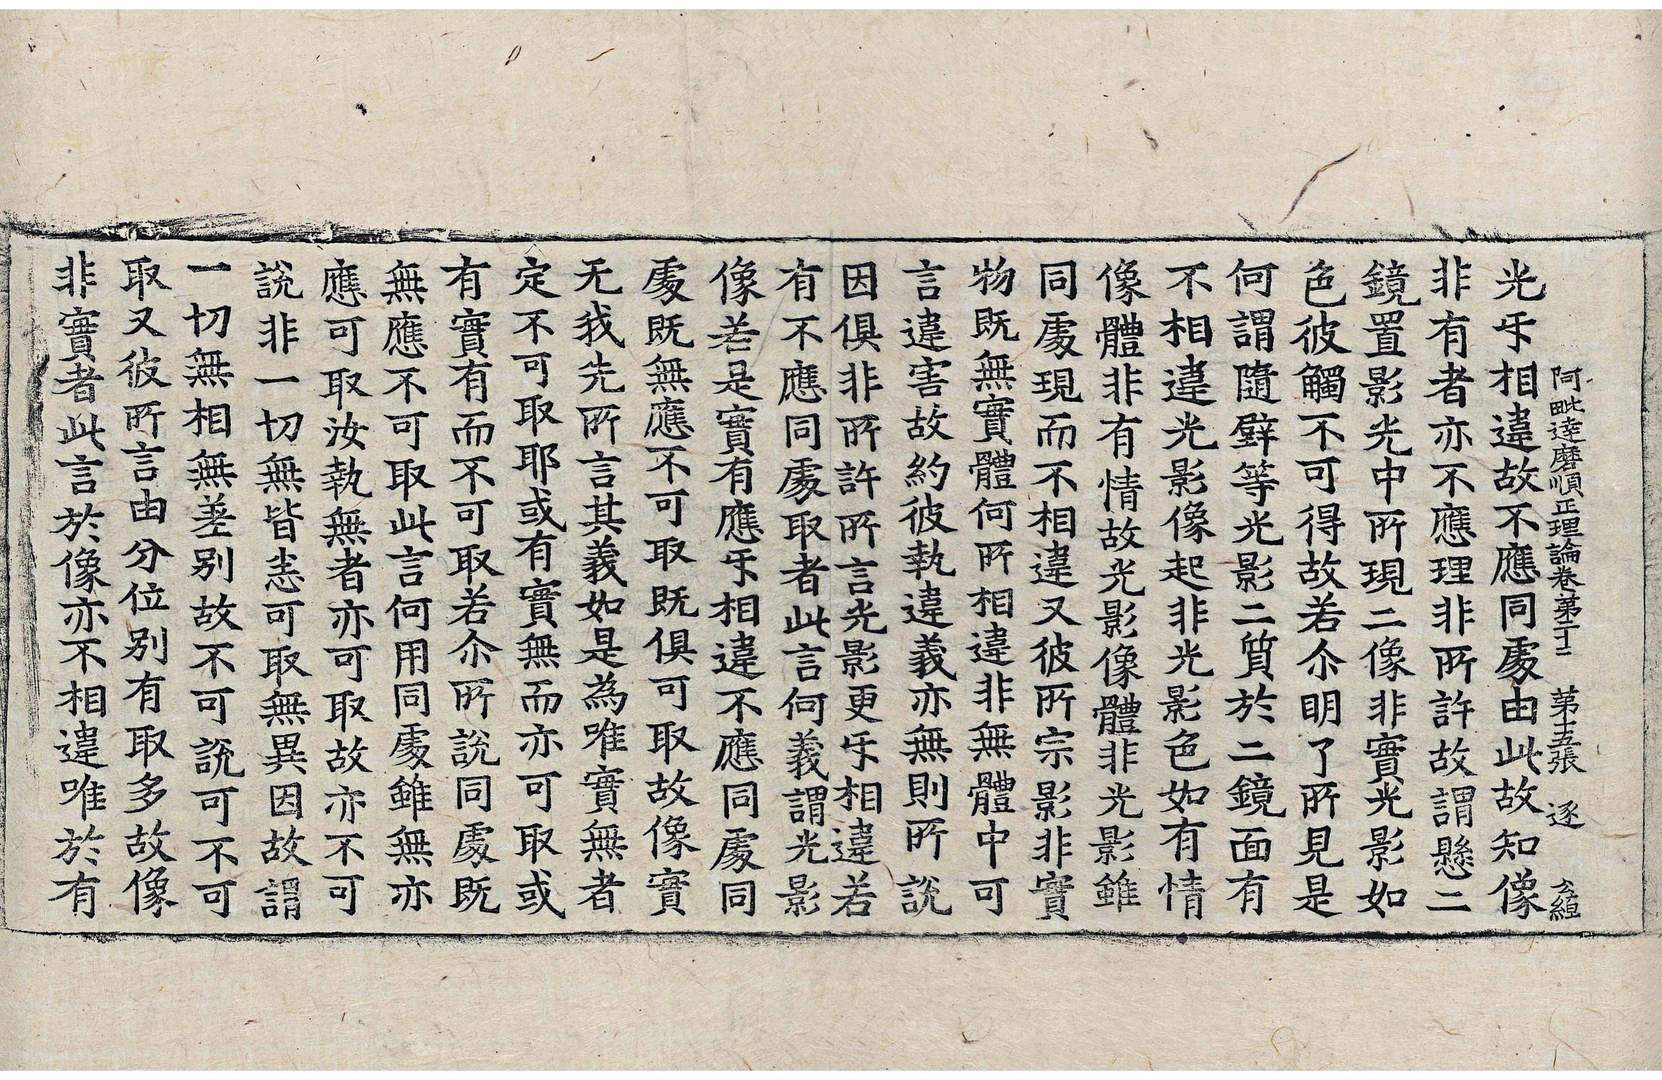 阿毗達磨順正理論卷第二十三　第十五張　逐
光㸦相違故不應同處由此故知像
非有者亦不應理非所許故謂懸二
鏡置影光中所現二像非實光影如
色彼觸不可得故若尒明了所見是
何謂隨壁等光影二質於二鏡面有
不相違光影像起非光影色如有情
像體非有情故光影像體非光影雖
同處現而不相違又彼所宗影非實
物既無實體何所相違非無體中可
言違害故約彼執違義亦無則所說
因俱非所許所言光影更㸦相違若
有不應同處取者此言何義謂光影
像若是實有應㸦相違不應同處同
處既無應不可取既俱可取故像實
无我先所言其義如是為唯實無者
定不可取耶或有實無而亦可取或
有實有而不可取若尒所說同處既
無應不可取此言何用同處雖無亦
應可取汝執無者亦可取故亦不可
說非一切無皆悉可取無異因故謂
一切無相無差别故不可說可不可
取又彼所言由分位别有取多故像
非實者此言於像亦不相違唯於有